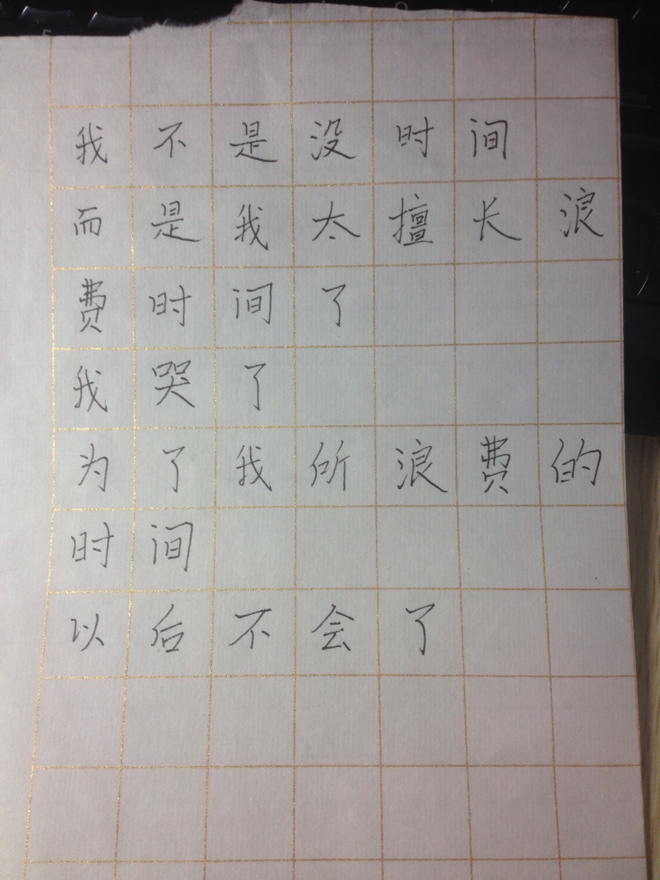 我不是没时间
而是我太擅长浪
费时间了
我哭了
为了我所浪费的
时间
以后不会了